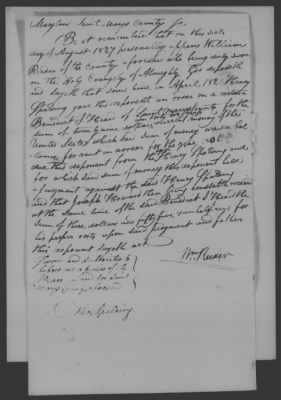 Maryland Saint Marys County Sc.
Be it remembered that on this sixth
day of August 1827 personally appears William
Reeder of the County aforesaid who being duly sworn
on the Holy Evangely of Almighty God deposeth
and sayeth that some time in April, 182 Henry
Spalding gave this deponent an order on a certain
Benedict I Heard of Saint Marys County for the
sum of twenty nine dollars current money of the
United States which said sum of money was a bal
lance for rent in arrear for the year
due this deponent from the Henry Spalding and
for which said sum of money this deponent has
a Judgment against the said Henry Spalding
and that Joseph Heard then being constable received
at the same time of the said Benedict I Heard the
sum of three dollars and fifty five cents for
his proper costs upon said judgment and further
this deponent sayeth not
Sworn and subscribed to
before me a Justice of the
Peace in and for Saint
Marys County aforesaid
Wm Reeder
Thos Spalding